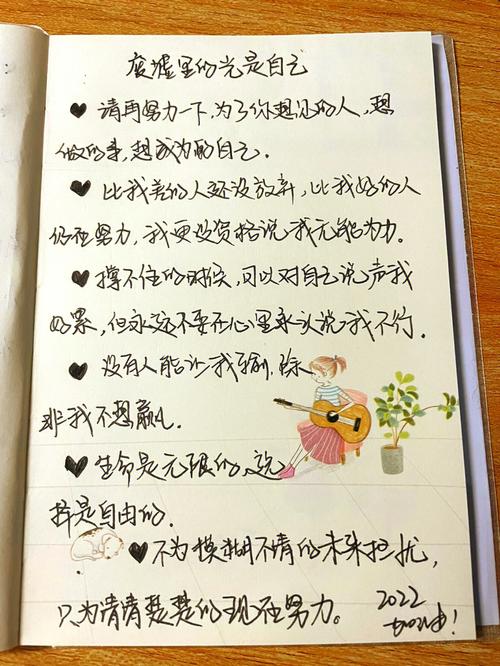 废墟里的光是自己
♥ 请再努力一下,为了你想见的人,想
做的事,想成为的自己.
♥ 比我差的人还没放弃,比我好的人
仍在努力,我更没资格说我无能为力.
♥ 撑不住的时候,可以对自己说声我
好累,但永远不要在心里承认说我不行.
♥ 没有人能让我输,除
非我不想赢.
♥ 生命是无限的,选
择是自由的.
♥ 不为模糊不清的未来担忧,
只为清清楚楚的现在努力。
2022